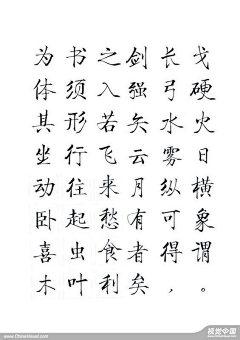 为书之
体须入
其形若
坐行飞
动往来
卧起愁
喜虫食
木叶利
剑长戈
强弓硬
矢水火
云雾日
月纵横
有可象
者得谓
矣，。
www.ChinaVisual.com
视觉中国